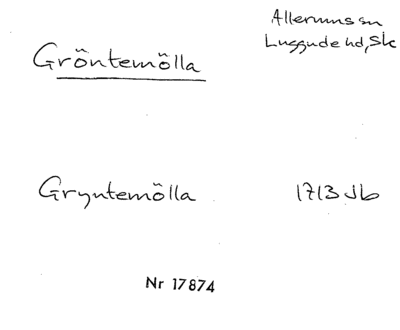 Allerums sn
Luggude hd, Sk
Gröntemölla
Gryntemölla 1713 Jb
Nr 17874